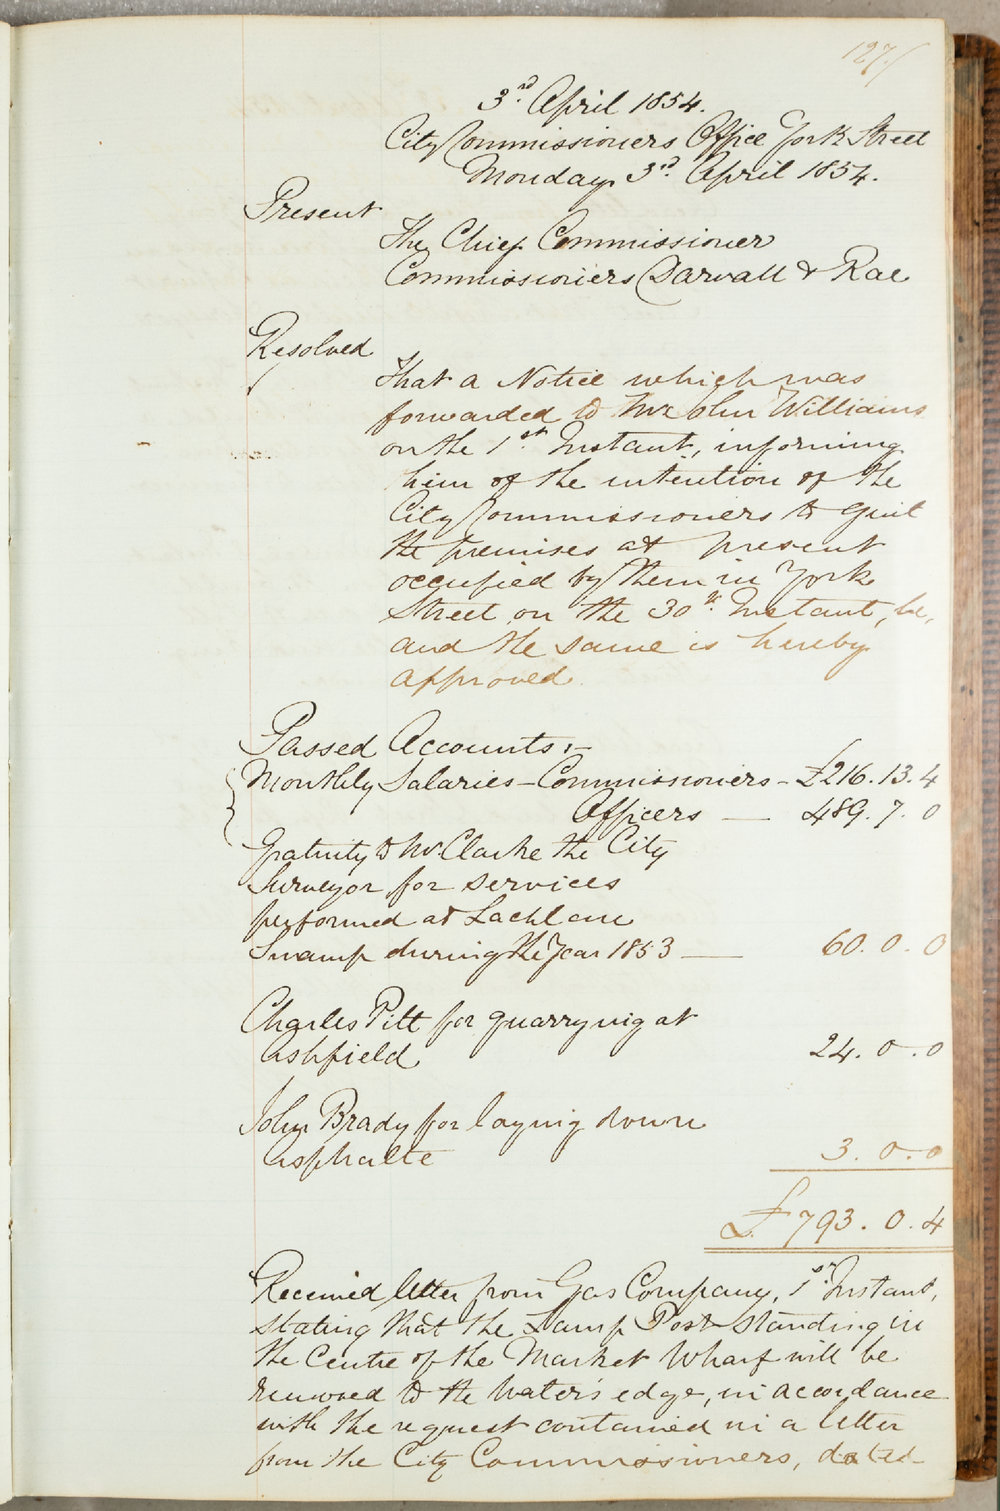 127
3rd. April 1854.
City Commissioners Office York Street
Monday 3rd. April 1854.
Present
The Chief Commissioner
Commissioners Darvall & Rae
Resolved
That a Notice which was
forwarded to Mr John Williams
on the 1st Instant, informing
him of the intention of the
City Commissioners to quit
the premises at present
occupied by them in York
Street on the 30th. Instant, be,
and the same is hereby
approved.
Passed Accounts:-
Monthly Salaries - Commissioners - £216. 13. 4
Officers — 489. 7. 0
Gratuity to Mr Clarke the City
Surveyor for services
performed at Lachlan
Swamp during the Year 1853 — 60. 0. 0
Charles Pitt for quarrying at
Ashfield 24. 0. 0
John Brady for laying down
Asphalte 3. 0. 0
£793. 0. 4
Received letter from Gas Company, 1st. Instant,
stating that the Lamp Post standing in
the Centre of the Market Wharf will be
removed to the Water's edge, in accordance
with the request contained in a letter
from the City Commissioners, dated